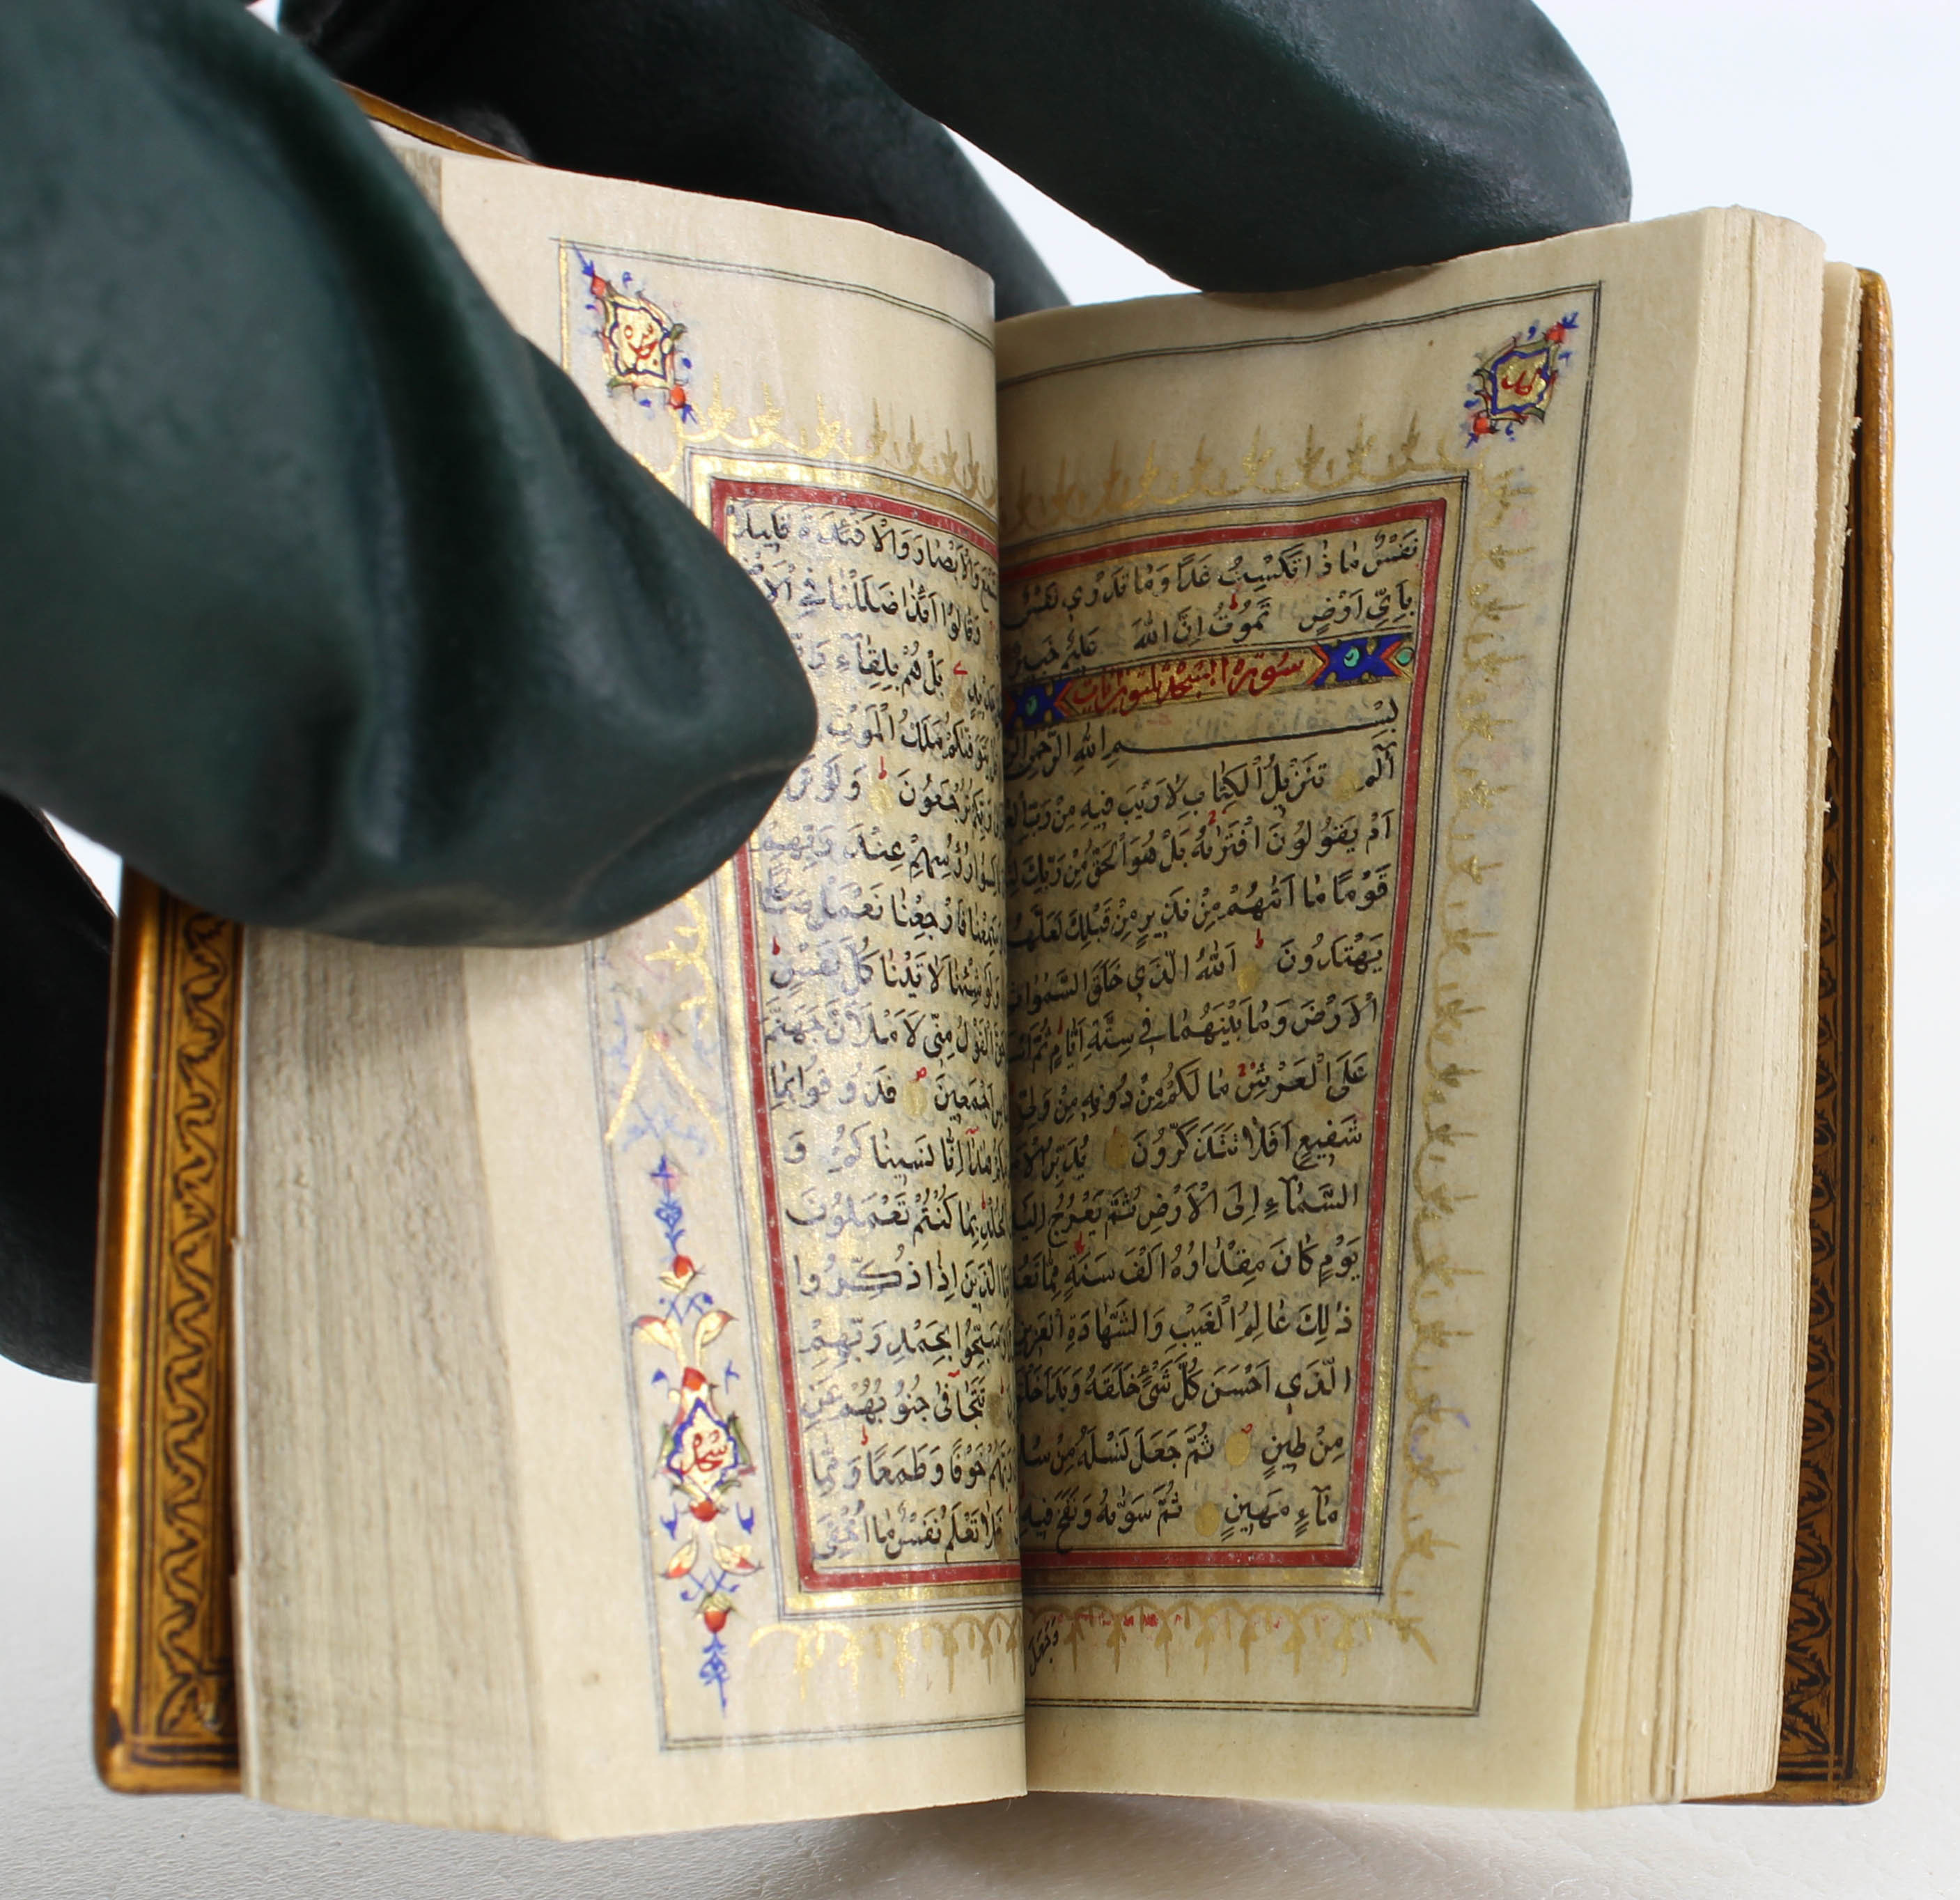 نَفْسٌ مٰا ذٰا تَكْسِبُ غَدًا وَمٰا تَدْرِي نَفْسٌ
بِاَيِّ اَرْضٍ تَمُوتُ اِنَّ اللّٰهَ عَلِيمٌ خَبِيرٌ
سُورَة السَّجْدَة
بِسْمِ اللّٰهِ الرَّحْمٰنِ
الٓمٓ تَنْزِيلُ الْكِتٰابِ لاٰ رَيْبَ فِيهِ مِنْ رَبِّ
اَمْ يَقُولُونَ افْتَرٰيهُ بَلْ هُوَ الْحَقُّ مِنْ رَبِّكَ
قَوْمًا مٰا اَتٰيهُمْ مِنْ نَذِيرٍ مِنْ قَبْلِكَ لَعَلَّهُمْ
يَهْتَدُونَ اَللّٰهُ الَّذِي خَلَقَ السَّمٰوٰاتِ
الْاَرْضَ وَمٰا بَيْنَهُمٰا فِي سِتَّةِ اَيّٰامٍ ثُمَّ
عَلَى الْعَرْشِ مٰا لَكُمْ مِنْ دُونِهِ مِنْ وَلِيٍّ
شَفِيعٍ اَفَلاٰ تَتَذَكَّرُونَ يُدَبِّرُ
السَّمٰآءِ اِلَى الْاَرْضِ ثُمَّ يَعْرُجُ اِلَيْهِ
يَوْمٍ كٰانَ مِقْدٰارُهُ اَلْفَ سَنَةٍ مِمّٰا
ذٰلِكَ عٰالِمُ الْغَيْبِ وَالشَّهٰادَةِ الْعَزِيزُ
الَّذِي اَحْسَنَ كُلَّ شَيْءٍ خَلَقَهُ وَبَدَاَ
مِنْ طِينٍ ثُمَّ جَعَلَ نَسْلَهُ مِنْ
مٰآءٍ مَهِينٍ ثُمَّ سَوّٰيهُ وَنَفَخَ فِيهِ
وَجَعَلَ
وَالْاَبْصٰارَ وَالْاَفْئِدَةَ قَلِيلًا
وَقٰالُوا اَئِذٰا ضَلَلْنٰا فِي الْاَرْضِ
بَلْ هُمْ بِلِقٰآءِ
يَتَوَفّٰيكُمْ مَلَكُ الْمَوْتِ
رَبِّكُمْ تُرْجَعُونَ وَلَوْ تَرٰى
نٰاكِسُوا رُؤُسِهِمْ عِنْدَ رَبِّهِمْ
وَسَمِعْنٰا فَارْجِعْنٰا نَعْمَلْ صٰالِحًا
وَلَوْ شِئْنٰا لَاٰتَيْنٰا كُلَّ نَفْسٍ
حَقَّ الْقَوْلُ مِنِّي لَاَمْلَاَنَّ جَهَنَّمَ
اَجْمَعِينَ فَذُوقُوا بِمٰا
هٰذٰا اِنّٰا نَسِينٰاكُمْ وَ
الْخُلْدِ بِمٰا كُنْتُمْ تَعْمَلُونَ
الَّذِينَ اِذٰا ذُكِّرُوا
وَسَبَّحُوا بِحَمْدِ رَبِّهِمْ
تَتَجٰافٰى جُنُوبُهُمْ عَنِ
رَبَّهُمْ خَوْفًا وَطَمَعًا وَمِمّٰا
فَلاٰ تَعْلَمُ نَفْسٌ مٰا اُخْفِيَ